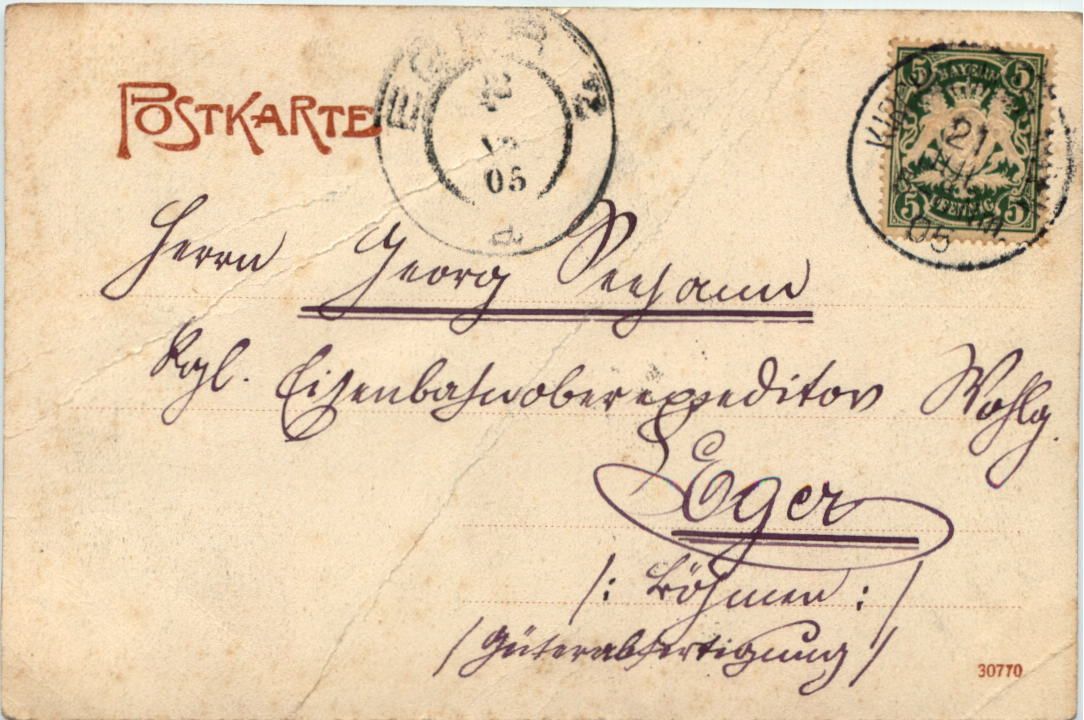 POSTKARTE
EGER 2
05
BAYERN
5 5
21
JUL
PFENNIG
5 5
05
Herrn Georg Seehann
Kgl. Eisenbahnoberexpeditor Wohlg.
Eger
/: Böhmen :/
/Güterabfertigung/
30770